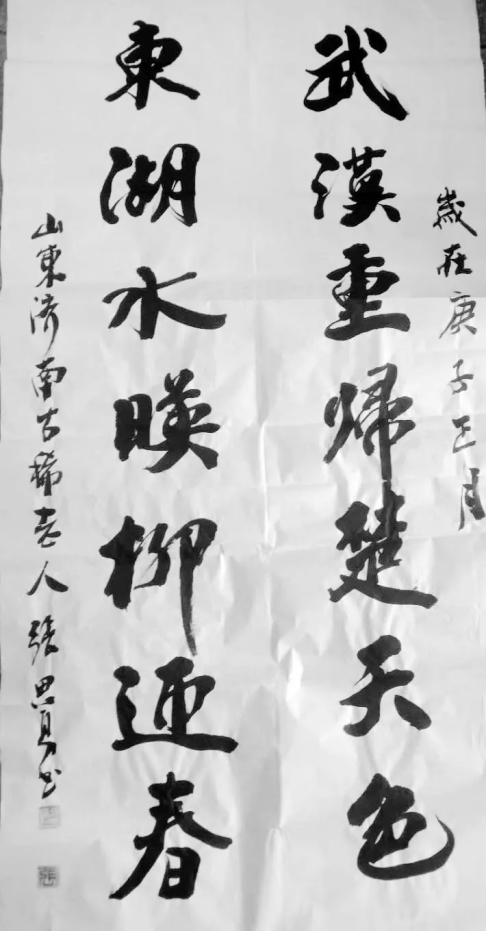 歲在庚子正月
武漢重歸楚天色
東湖水暎柳迎春
山東濟南古稀老人張思勇书